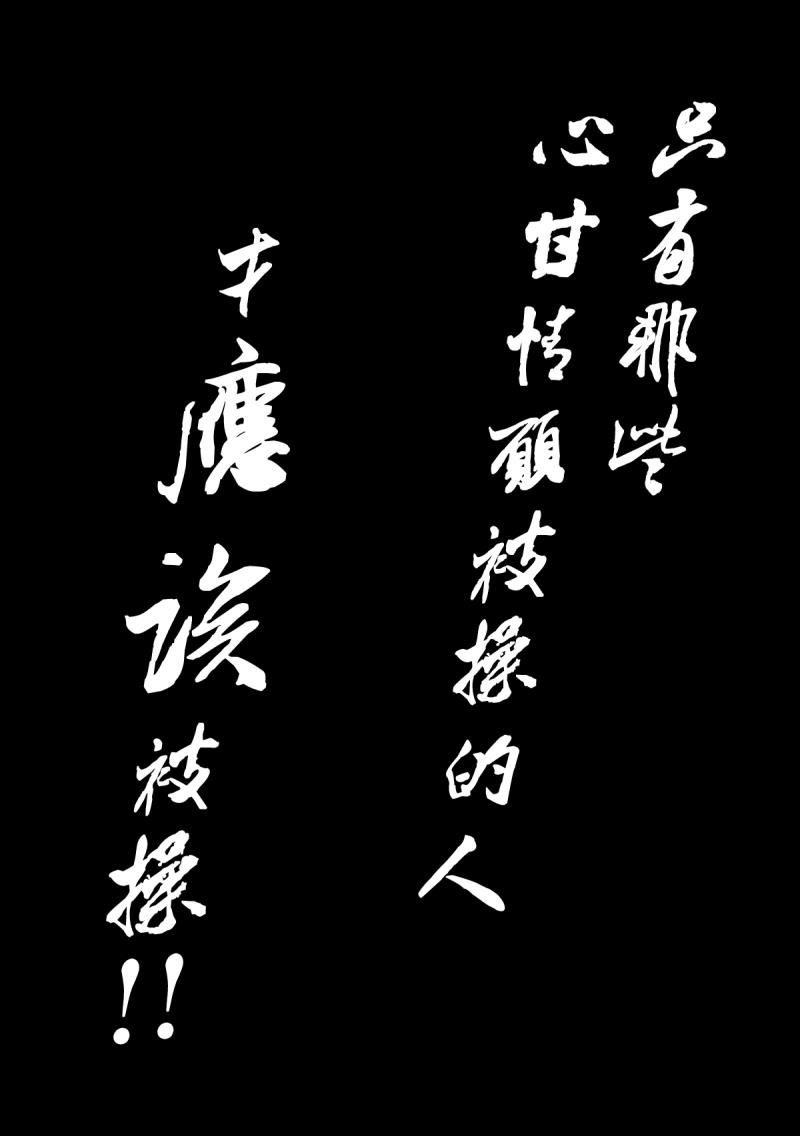 只有那些
心甘情願被操的人
才應該被操!!